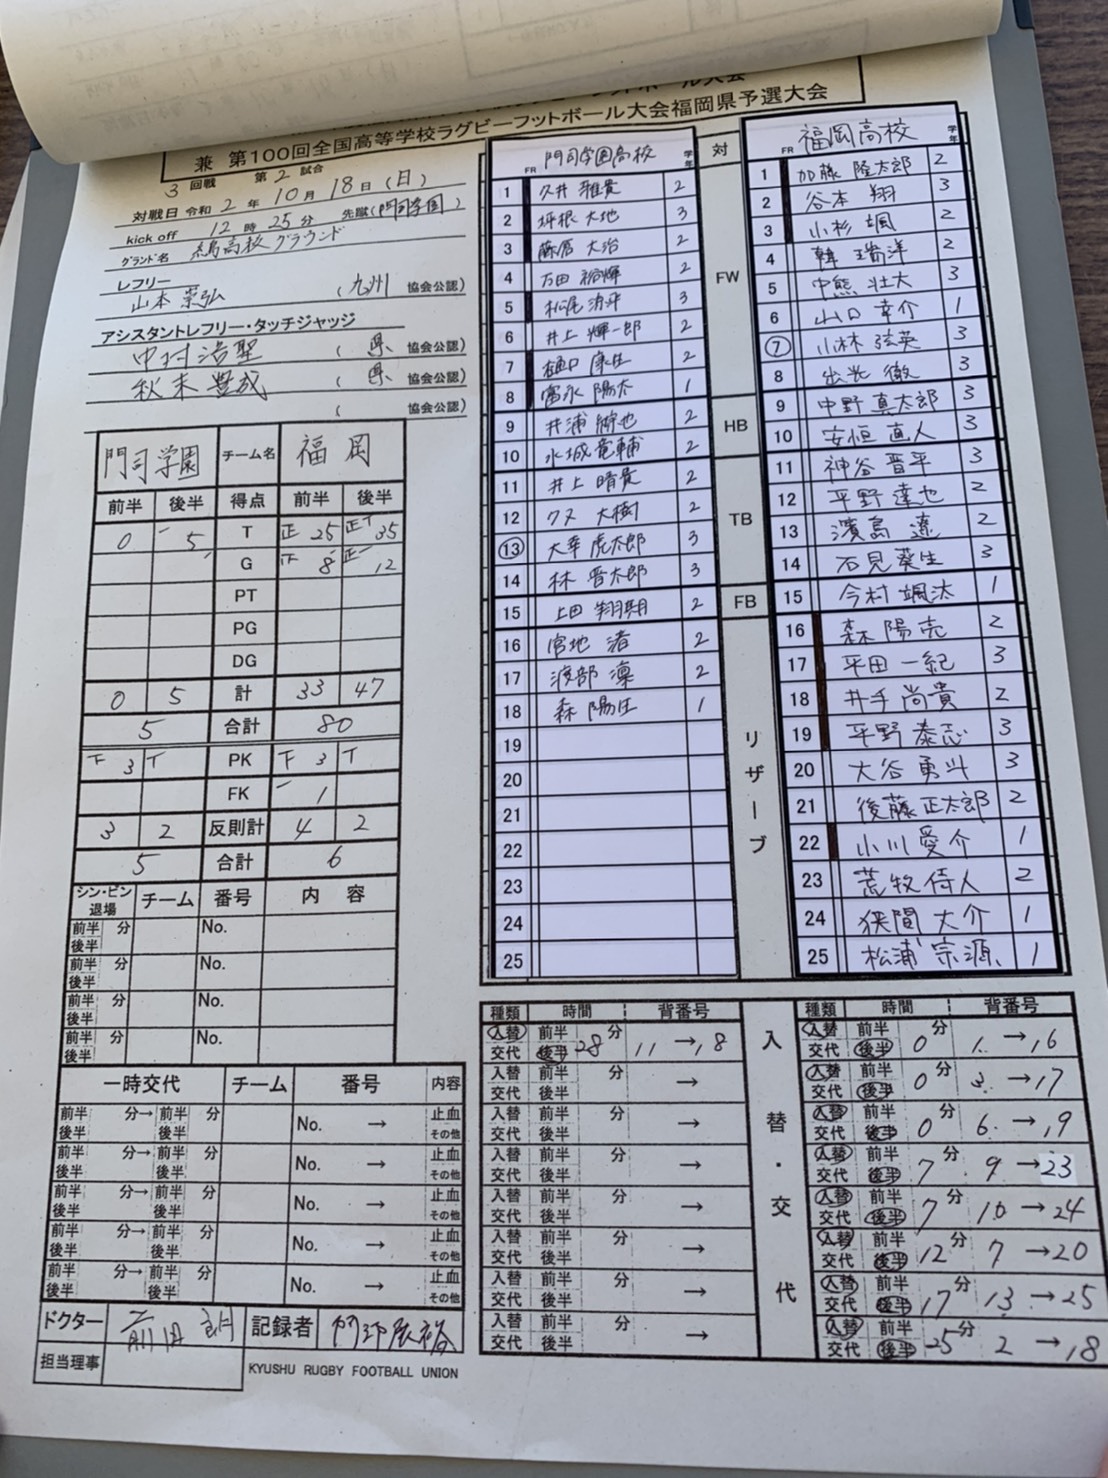 兼 第100回全国高等学校ラグビーフットボール大会福岡県予選大会
3 回戦 第 2 試合
対戦日 令和 2 年 10 月 18 日 (日)
kick off 12 時 25 分 先蹴(門司学園)
グランド名 高校グラウンド
レフリー
山本 崇弘 (九州 協会公認)
アシスタントレフリー・タッチジャッジ
中村 浩聖 (県 協会公認)
秋末 豊成 (県 協会公認)
( 協会公認)
門司学園 チーム名 福岡
前半 後半 得点 前半 後半
0 一 5 T 正 25 正T 35
G 下 8 正一 12
PT
PG
DG
0 5 計 33 47
5 合計 80
下 3 T PK 下 3 T
FK 一 1
3 2 反則計 4 2
5 合計 6
シン・ビン 退場 チーム 番号 内容
前半 後半 分 No.
前半 後半 分 No.
前半 後半 分 No.
前半 後半 分 No.
一時交代 チーム 番号 内容
前半 後半 分→ 前半 後半 分 No. → 止血 その他
前半 後半 分→ 前半 後半 分 No. → 止血 その他
前半 後半 分→ 前半 後半 分 No. → 止血 その他
前半 後半 分→ 前半 後半 分 No. → 止血 その他
前半 後半 分→ 前半 後半 分 No. → 止血 その他
ドクター 記録者
担当理事
KYUSHU RUGBY FOOTBALL UNION
FR 門司学園高校 学年
1 久井 雅貴 2
2 坪根 大地 3
3 藤原 大治 2
4 万田 裕輝 2
5 松尾 3
6 井上 輝一郎 2
7 樋口 康生 2
8 富永 陽太 1
9 井浦 2
10 水城 竜輔 2
11 井上 晴貴 2
12 クヌ 大樹 2
13 大幸 虎太郎 3
14 林 晋太郎 3
15 上田 翔期 2
16 宮地 渚 2
17 渡部 凜 2
18 森 陽生 1
19
20
21
22
23
24
25
対
FW
HB
TB
FB
リザーブ
FR 福岡高校 学年
1 加藤 隆太郎 2
2 谷本 翔 3
3 小杉 颯 2
4 韓 瑞洋 2
5 中熊 壮大 3
6 山口 幸介 1
7 小林 弦英 3
8 出光 徹 3
9 中野 真太郎 3
10 安恒 直人 3
11 神谷 晋平 3
12 平野 達也 2
13 濱島 遼 2
14 石見 葵生 3
15 今村 颯汰 1
16 森 陽亮 2
17 平田 一紀 3
18 井手 尚貴 2
19 平野 泰志 3
20 大谷 勇斗 3
21 後藤 正太郎 2
22 小川 愛介 1
23 荒牧 侍人 2
24 狭間 大介 1
25 松浦 宗源 1
種類 時間 背番号
入替 交代 前半 後半 28 分 11 → 18
入替 交代 前半 後半 分 →
入替 交代 前半 後半 分 →
入替 交代 前半 後半 分 →
入替 交代 前半 後半 分 →
入替 交代 前半 後半 分 →
入替 交代 前半 後半 分 →
入替 交代 前半 後半 分 →
入替・交代
種類 時間 背番号
入替 交代 前半 後半 0 分 1 → 16
入替 交代 前半 後半 0 分 3 → 17
入替 交代 前半 後半 0 分 6 → 19
入替 交代 前半 後半 7 分 9 → 23
入替 交代 前半 後半 7 分 10 → 24
入替 交代 前半 後半 12 分 7 → 20
入替 交代 前半 後半 17 分 13 → 25
入替 交代 前半 後半 25 分 2 → 18